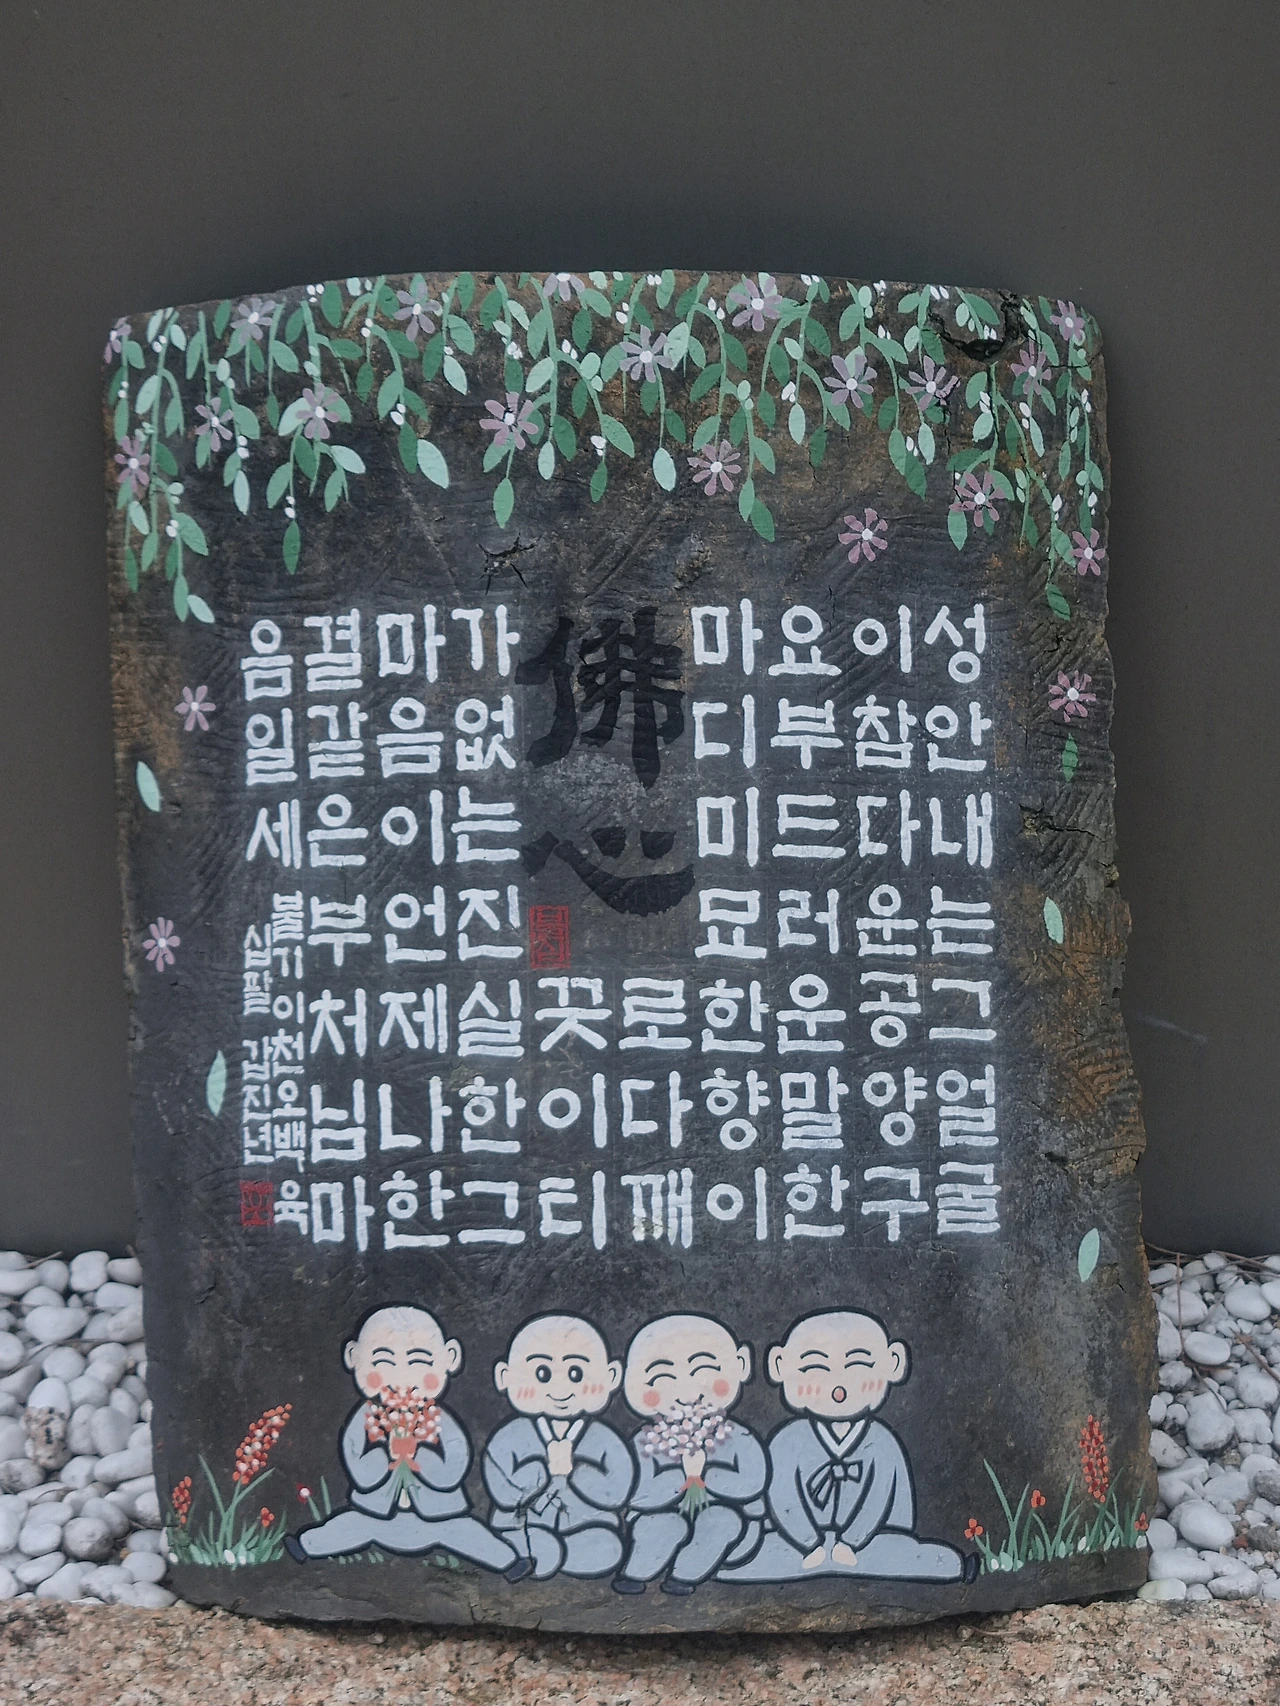 성안내는그얼굴
이참다운공양구
요부드러운말한
마디미묘한향이
佛心
로다깨
꽃이티
가없는진실한그
마음이언제나한
결같은부처님마
음일세
불기이천오백육
십팔 갑진년